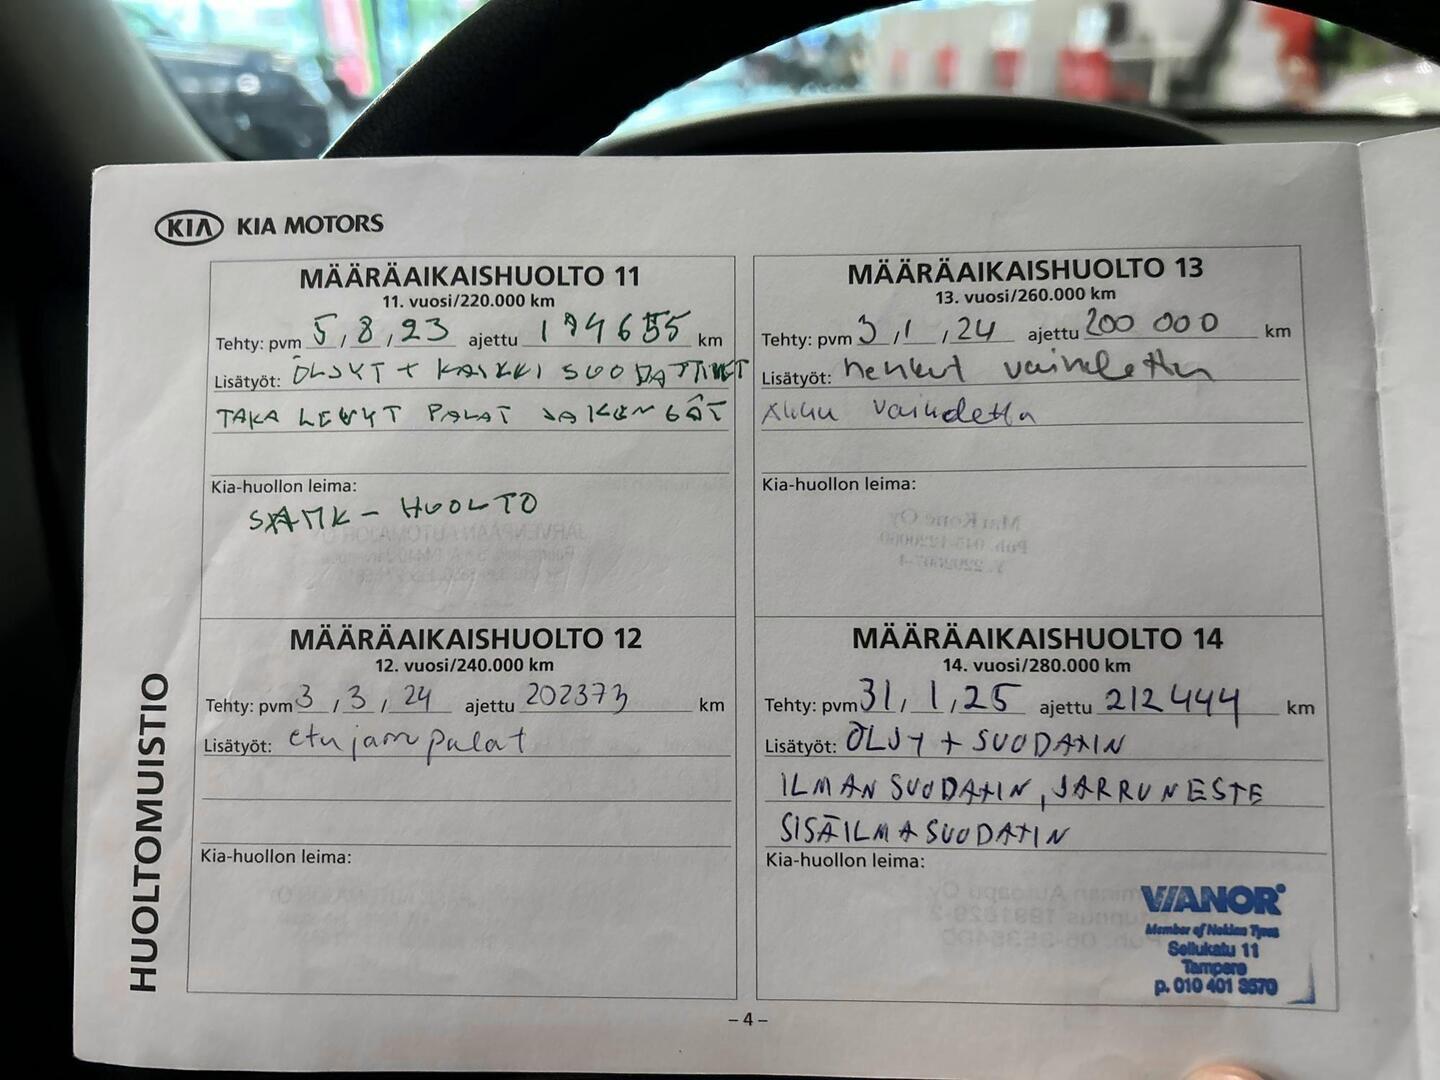 KIA KIA MOTORS
MÄÄRÄAIKAISHUOLTO 11
11. vuosi/220.000 km
Tehty: pvm 5,8,23 ajettu 194655 km
Lisätyöt: ÖLJYT + KAIKKI SUODATTIMET
TAKA LEVYT PALAT JA KENGÄT
Kia-huollon leima:
SAMK - HUOLTO
MÄÄRÄAIKAISHUOLTO 12
12. vuosi/240.000 km
Tehty: pvm 3,3,24 ajettu 202373 km
Lisätyöt: etujarrupalat
Kia-huollon leima:
MÄÄRÄAIKAISHUOLTO 13
13. vuosi/260.000 km
Tehty: pvm 3,1,24 ajettu 200 000 km
Lisätyöt: vaihdettu
Akku vaihdettu
Kia-huollon leima:
MÄÄRÄAIKAISHUOLTO 14
14. vuosi/280.000 km
Tehty: pvm 31,1,25 ajettu 212444 km
Lisätyöt: ÖLJY + SUODATIN
ILMAN SUODATIN, JARRUNESTE
SISÄILMASUODATIN
Kia-huollon leima:
VIANOR
Member of Nokian Tyres
Sellukatu 11
Tampere
p. 010 401 3570
HUOLTOMUISTIO
– 4 –